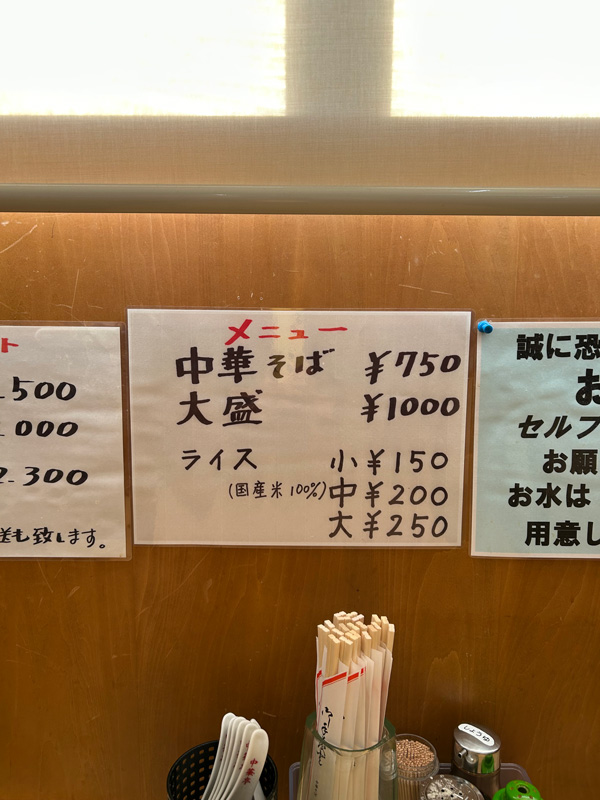 ト
500
000
2.300
送も致します。
メニュー
中華そば ¥750
大盛 ¥1000
ライス 小¥150
(国産米100%)中¥200
大¥250
誠に恐
お
セルフ
お願
お水は
用意し
中華そ